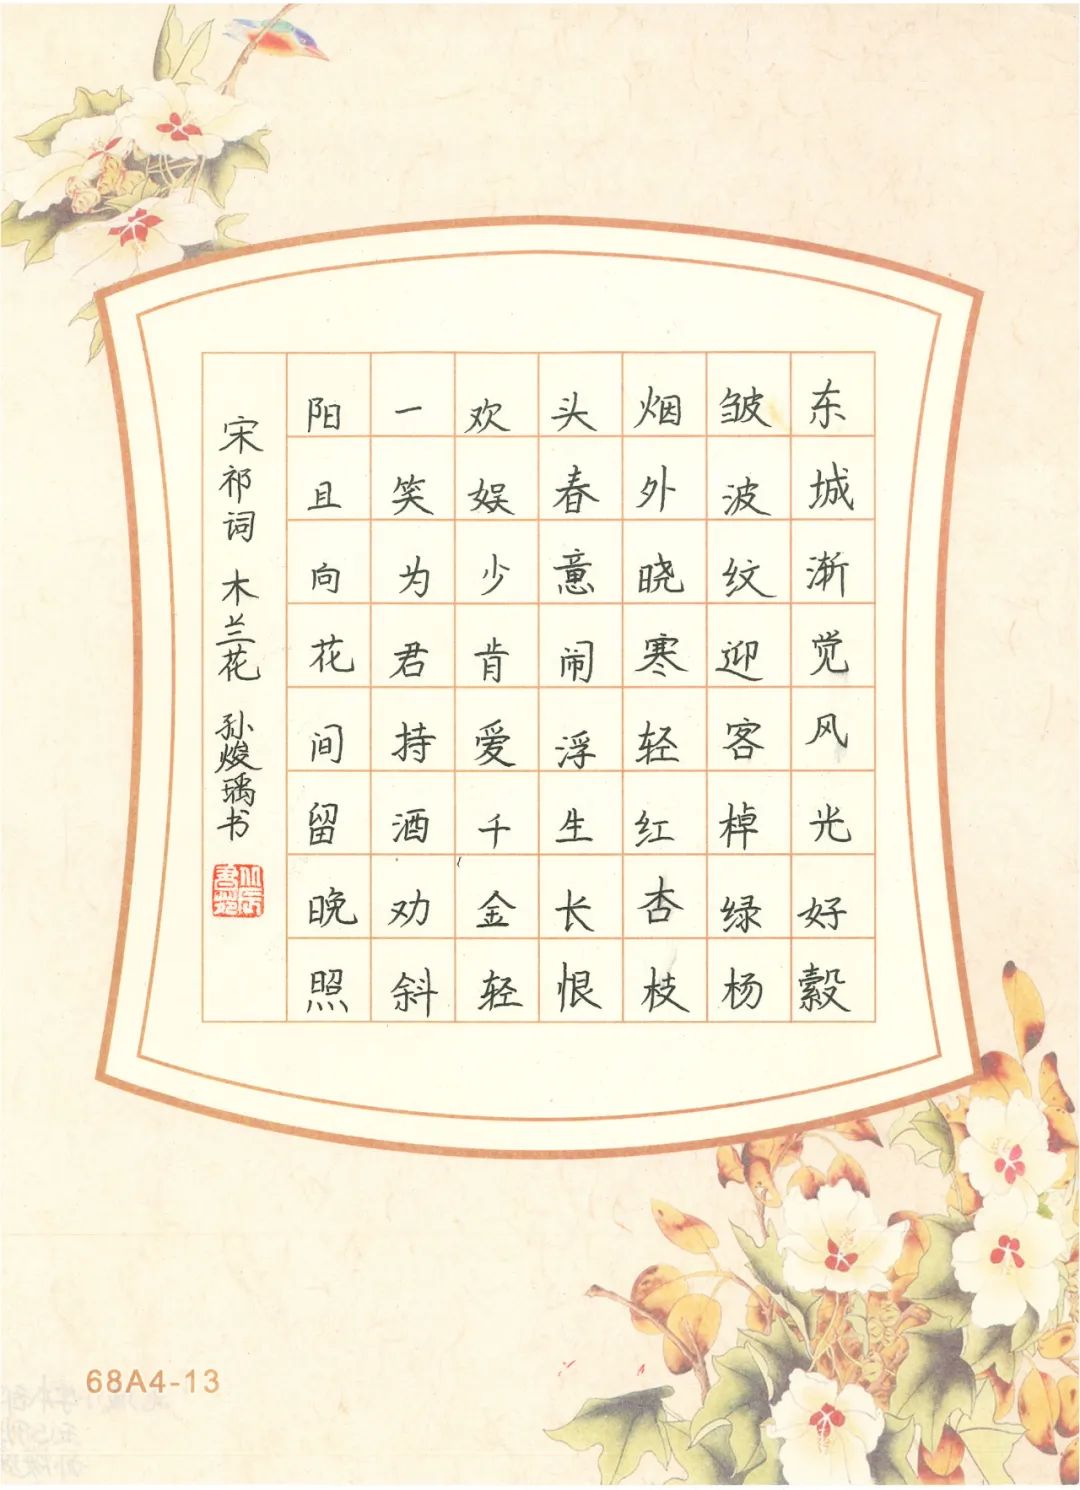 东城渐觉风光好縠
皱波纹迎客棹绿杨
烟外晓寒轻红杏枝
头春意闹浮生长恨
欢娱少肯爱千金轻
一笑为君持酒劝斜
阳且向花间留晚照
宋祁词 木兰花 孙焌瑀书
68A4-13